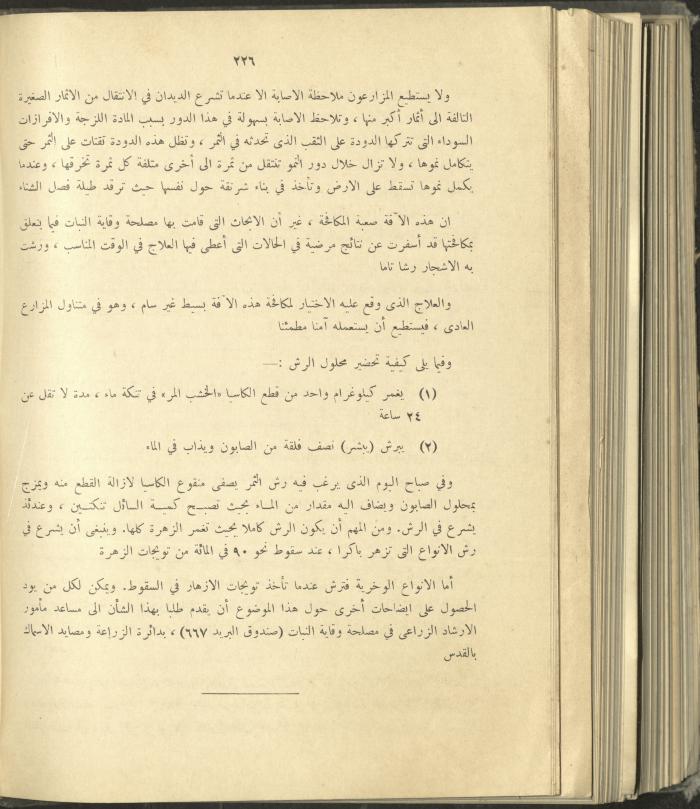 ٢٢٦
ولا يستطيع المزارعون ملاحظة الاصابة الا عندما تشرع الديدان في الانتقال من الاثمار الصغيرة
التالفة الى أثمار أكبر منها ، وتلاحظ الاصابة بسهولة في هذا الدور بسبب المادة اللزجة والافرازات
السوداء التى تتركها الدودة على الثقب الذى تحدثه في الثمر ، وتظل هذه الدودة تقتات على الثمر حتى
يتكامل نموها ، ولا تزال خلال دور النمو تنتقل من ثمرة الى أخرى متلفة كل ثمرة تخرقها ، وعندما
يكمل نموها تسقط على الارض وتأخذ في بناء شرنقة حول نفسها حيث ترقد طيلة فصل الشتاء
ان هذه الآفة صعبة المكافحة ، غير أن الابحاث التى قامت بها مصلحة وقاية النبات فيما يتعلق
بمكافحتها قد أسفرت عن نتائج مرضية في الحالات التى أعطى فيها العلاج في الوقت المناسب ، ورشت
به الاشجار رشا تاما
والعلاج الذى وقع عليه الاختيار لمكافحة هذه الآفة بسيط غير سام ، وهو في متناول المزارع
العادى ، فيستطيع أن يستعمله آمنا مطمئنا
وفيما يلى كيفية تحضير محلول الرش :—
(١) يغمر كيلوغرام واحد من قطع الكاسيا «الخشب المر» في تنكة ماء ، مدة لا تقل عن
٢٤ ساعة
(٢) يبرش (يبشر) نصف فلقة من الصابون ويذاب في الماء
وفي صباح اليوم الذى يرغب فيه رش الثمر يصفى منقوع الكاسيا لازالة القطع منه ويمزج
بمحلول الصابون ويضاف اليه مقدار من الماء بحيث تصبح كمية السائل تنكتين ، وعندئذ
يشرع في الرش. ومن المهم أن يكون الرش كاملا بحيث تغمر الزهرة كلها. وينبغى أن يشرع في
رش الانواع التى تزهر باكرا ، عند سقوط نحو ٩٠ في المائة من تويجات الزهرة
أما الانواع الوخرية فترش عندما تأخذ تويجات الازهار في السقوط. ويمكن لكل من يود
الحصول على ايضاحات أخرى حول هذا الموضوع أن يقدم طلبا بهذا الشأن الى مساعد مأمور
الارشاد الزراعى في مصلحة وقاية النبات (صندوق البريد ٦٦٧) ، بدائرة الزراعة ومصايد الاسماك
بالقدس